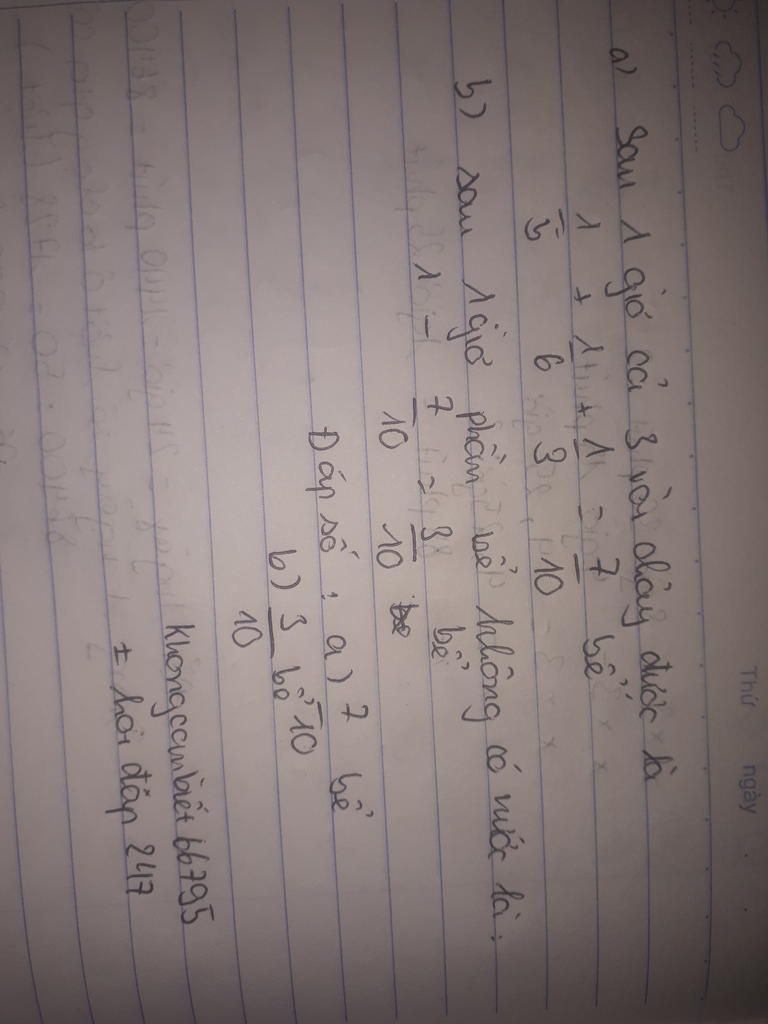 Thứ ngày
a) Sau 1 giờ cả 3 vòi chảy được là
1/5 + 1/6 + 1/3 = 7/10 bể
b) sau 1 giờ phần bể không có nước là :
1 - 7/10 = 3/10 bể
Đáp số : a) 7/10 bể
b) 3/10 bể
khongcanbiet66795
± hỏi đáp 247